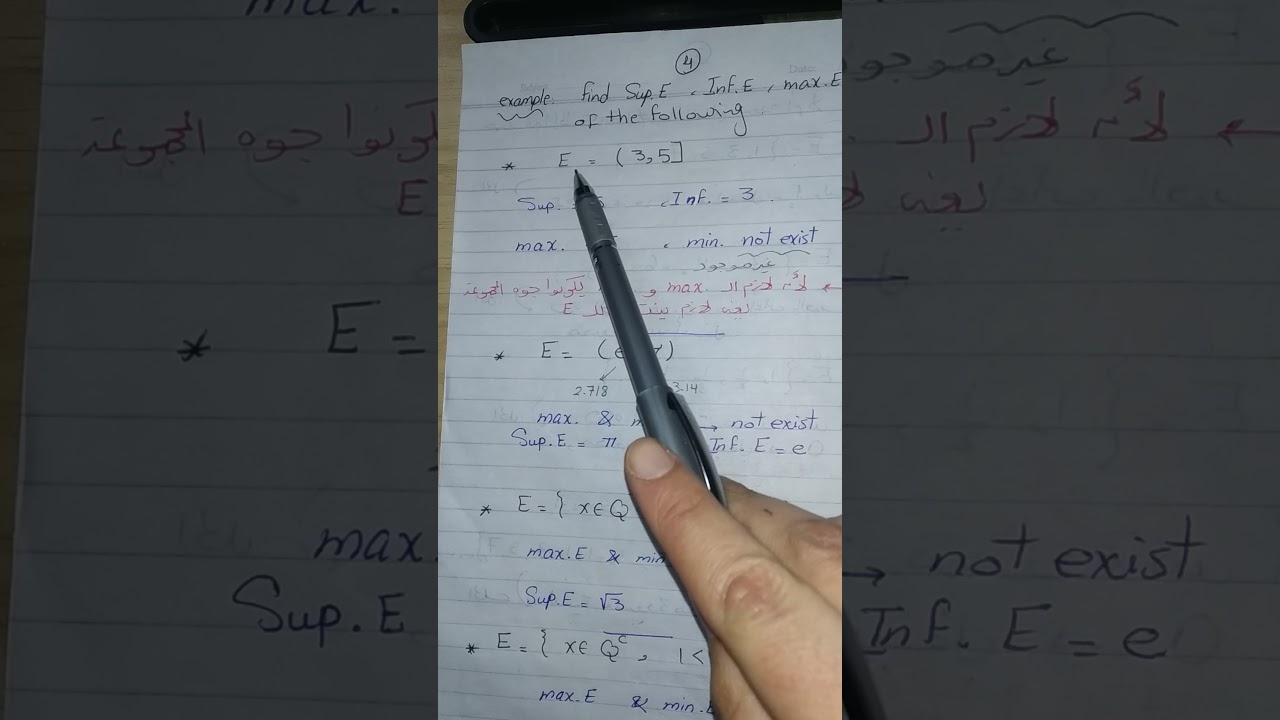 4
example. find Sup.E , Inf.E , max.E
of the following
* E = (3,5]
Sup. , Inf. = 3
max. , min. not exist
غير موجود
لأنه لازم الـ max. و يكونوا جوه المجموعة
يعني لازم للـ E
* E = (e )
2.718 3.14
max. & → not exist
Sup.E = π Inf. E = e
* E = { x∈Q
max.E & min
Sup.E = √3
* E = { x∈ Qᶜ , 1<
max.E & min.